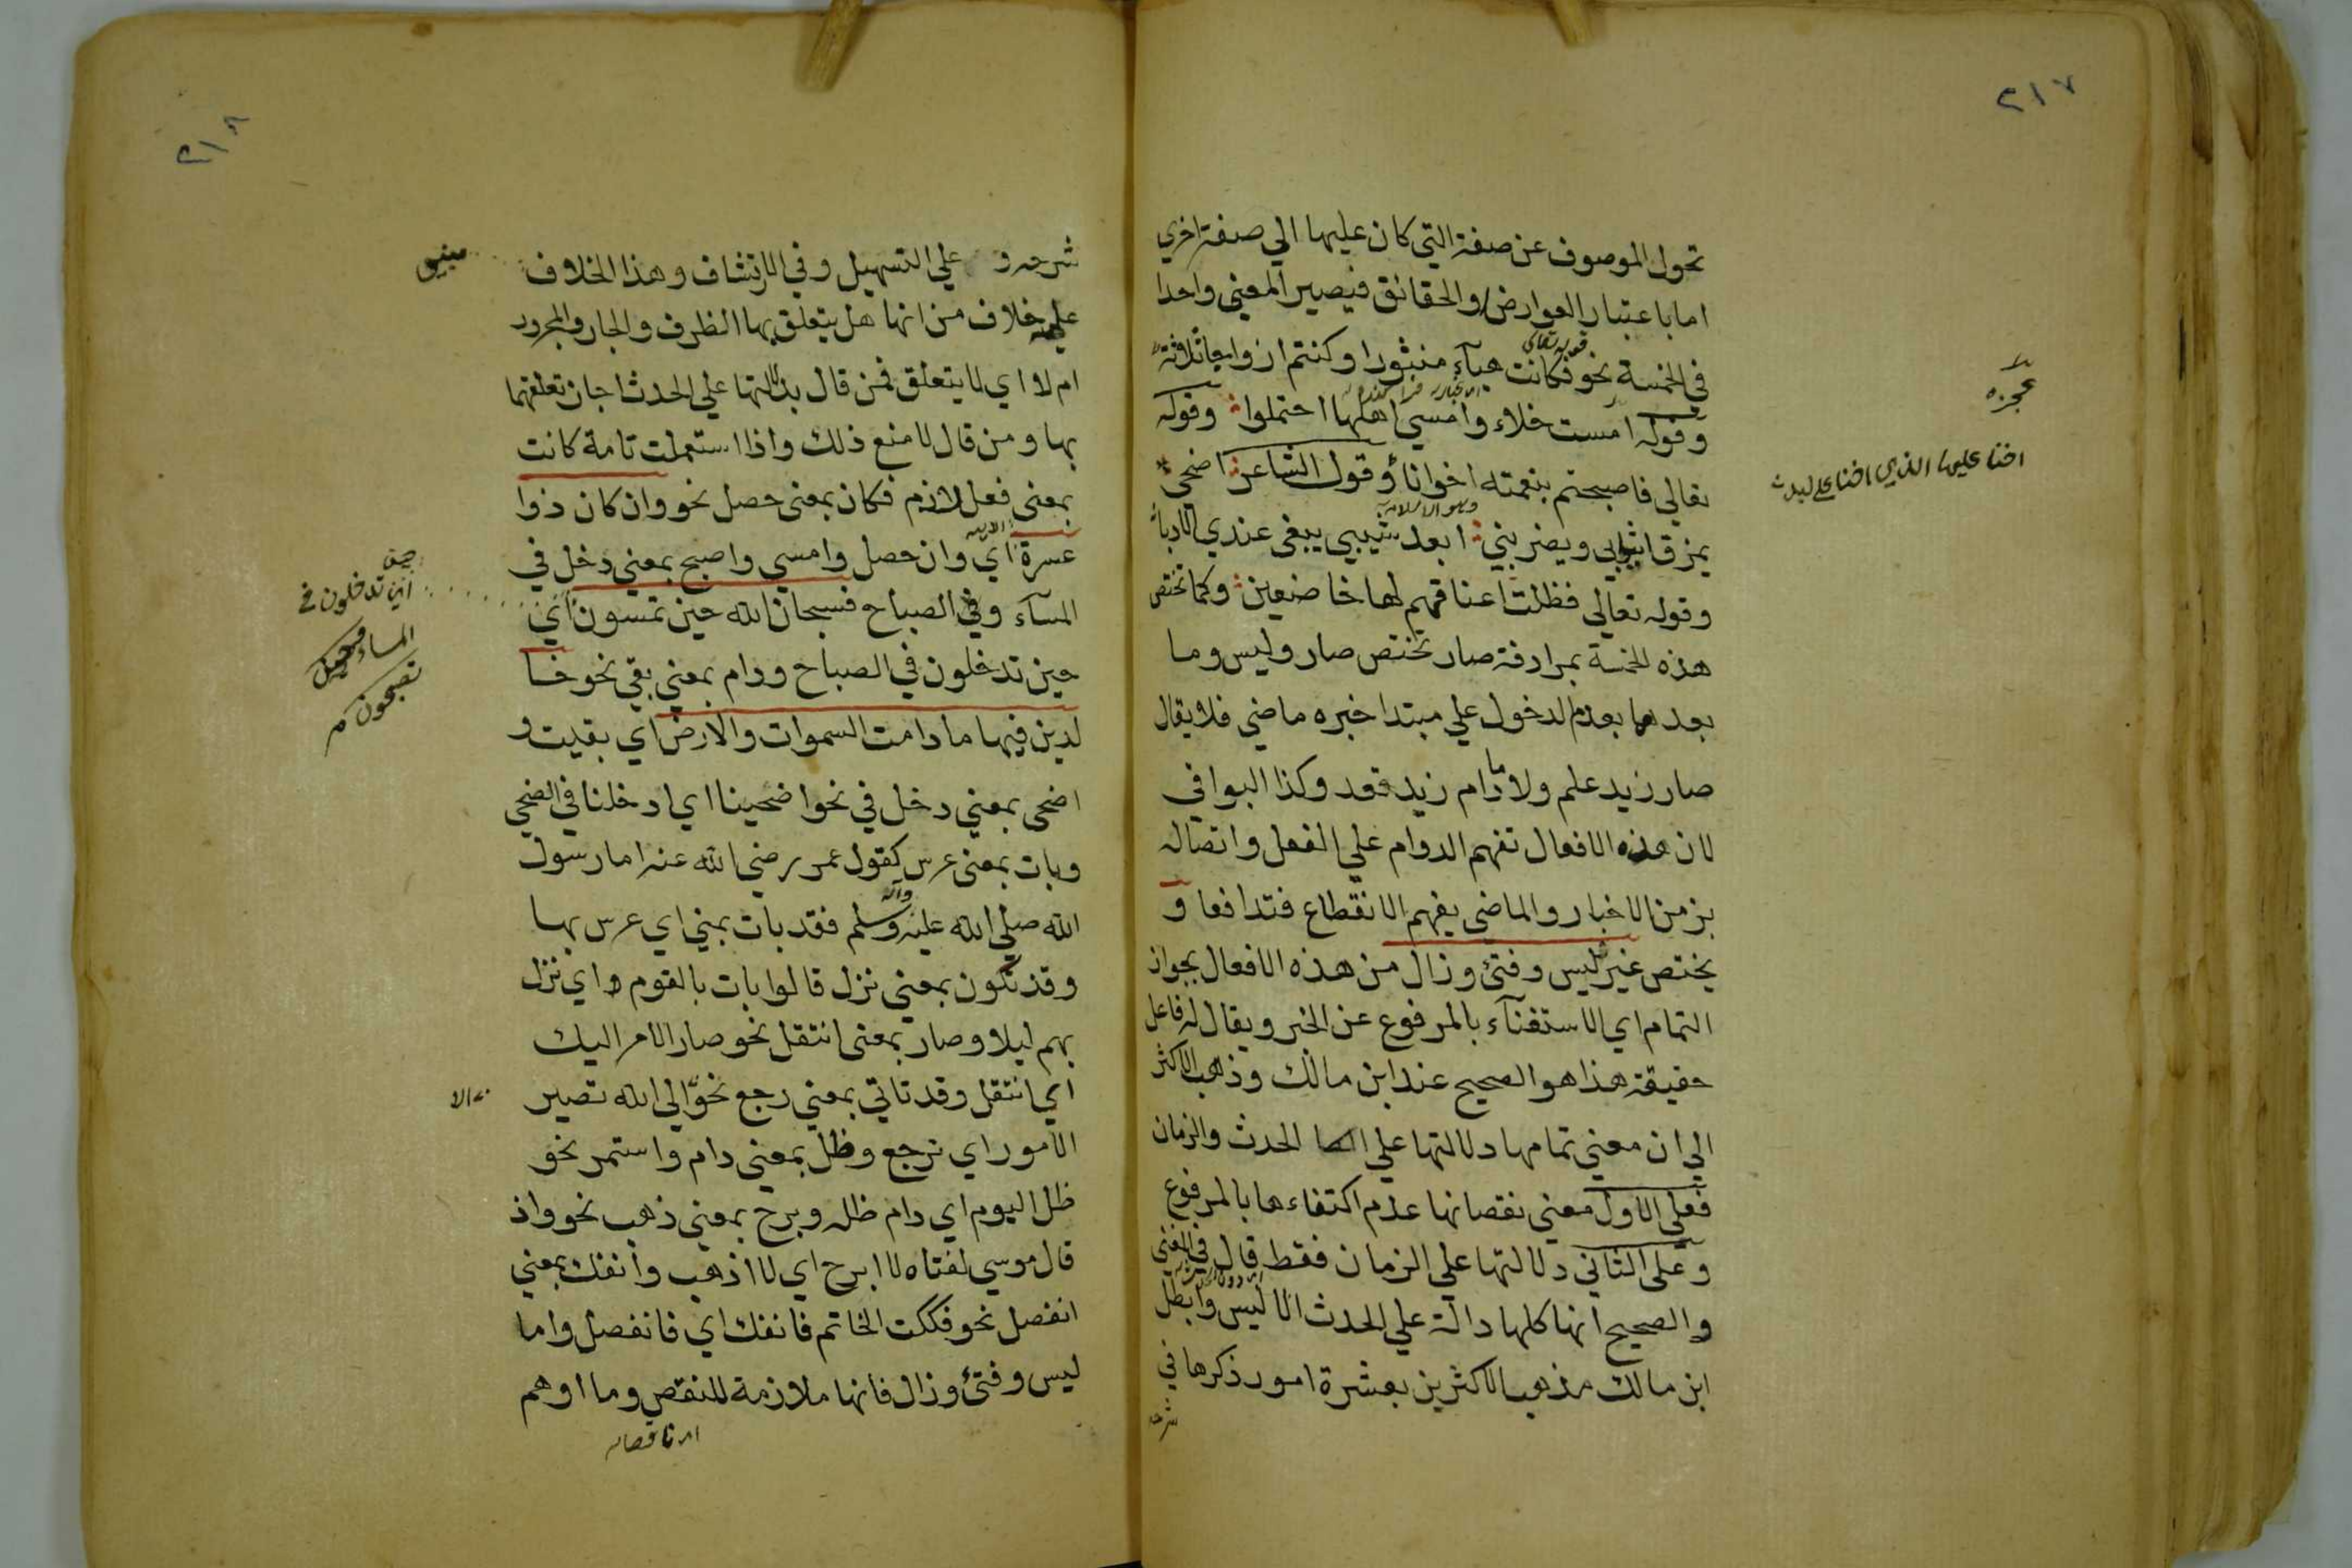 ٢١٧
تحول الموصوف عن صفة التي كان عليها الي صفة اخري
اما باعتبار العوارض والحقائق فيصير المعني واحدا
قوله تعالي
في الخمسة نحو فكانت هبآء منبثورا وكنتم ازواجا ثلاثة
وقوله امست خلاء وامسي اهلها احتملوا وقوله
عجزه
اخنا عليها الذي اخنا علي لبد
تعالي فاصبحتم بنعمته اخوانا وقول الشاعر اضحي
يمزق اثوابي ويضربني ابعد شيبي يبغي عندي الادبا
وقوله تعالي فظلت اعناقهم لها خاضعين وكما تختص
هذه الخمسة بمرادفة صار تختص صار وليس وما
بعدها بعدم الدخول علي مبتدا خبره ماضي فلا يقال
صار زيد علم ولا ما دام زيد قعد وكذا البواقي
لان هذه الافعال تفهم الدوام علي الفعل واتصاله
بزمن الاخبار والماضي يفهم الانقطاع فتدافعا و
يختص غير ليس وفتئ وزال من هذه الافعال بجواز
التمام اي الاستغنآء بالمرفوع عن الخبر ويقال له فاعل
حقيقة هذا هو الصحيح عند ابن مالك وذهب الاكثر
الي ان معني تمامها دلالتها علي الحدث والزمان
فعلي الاول معني نقصانها عدم اكتفاءها بالمرفوع
وعلي الثاني دلالتها علي الزمان فقط قال في المغني
والصحيح انها كلها دالة علي الحدث الا ليس وابطل
ابن مالك مذهب الاكثرين بعشرة امور ذكرها في
شرحه
٢١٨
شرحه علي التسهيل وفي الارتشاف وهذا الخلاف مبني
علي خلاف من انها هل يتعلق بها الظرف والجار والمجرور
ام لا اي لا يتعلق فمن قال بدلالتها علي الحدث اجاز تعلقهما
بها ومن قال لا منع ذلك واذا استعملت تامة كانت
بمعني فعل لازم فكان بمعني حصل نحو وان كان ذوا
عسرة اي وان حصل وامسي واصبح بمعني دخل في
المسآء وفي الصباح فسبحان الله حين تمسون اي
حين تدخلون في
المساء وحين
تصبحون
حين تدخلون في الصباح ودام بمعني بقي نحو خا
لدين فيها ما دامت السموات والارض اي بقيت و
اضحي بمعني دخل في نحو اضحينا اي دخلنا في الضحي
وبات بمعني عرس كقول عمر رضي الله عنه اما رسول
الله صلي الله عليه وآله وسلم فقد بات بمني اي عرس بها
وقد تكون بمعني نزل قالوا بات بالقوم اي نزل
بهم ليلا وصار بمعني انتقل نحو صار الامر اليك
اي انتقل وقد تاتي بمعني رجع نحو الا الي الله تصير
الامور اي ترجع وظل بمعني دام واستمر نحو
ظل اليوم اي دام ظله وبرح بمعني ذهب نحو واذ
قال موسي لفتاه لا ابرح اي لا اذهب وانفك بمعني
انفصل نحو فككت الخاتم فانفك اي فانفصل واما
ليس وفتئ وزال فانها ملازمة للنقص وما اوهم